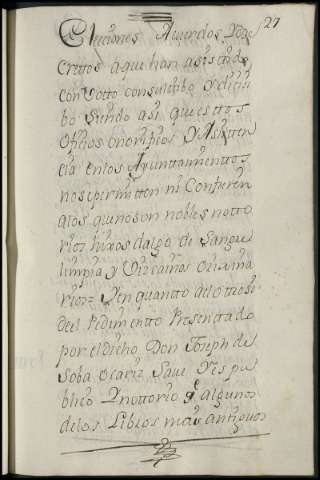 27
Elecciones Acuerdos Y De
Crettos a que han asistido,
con Votto consultibo y deçisi
bo siendo asi que esttos
Ofiçios onorifiços y Asisten
cia en los Ayunttamienttos
no se permitten ni Confieren
a los que no son nobles notto
rios hixos dalgo de Sangre
limpia y Vizcainos orixina
rios Y en quantto al otrosi
del Pedimentto Presentado
por el dicho Don Joseph de
Soba ocariz Save Y es pu
blico Y nottorio q̃ algunos
de los Libros mas anttiguos